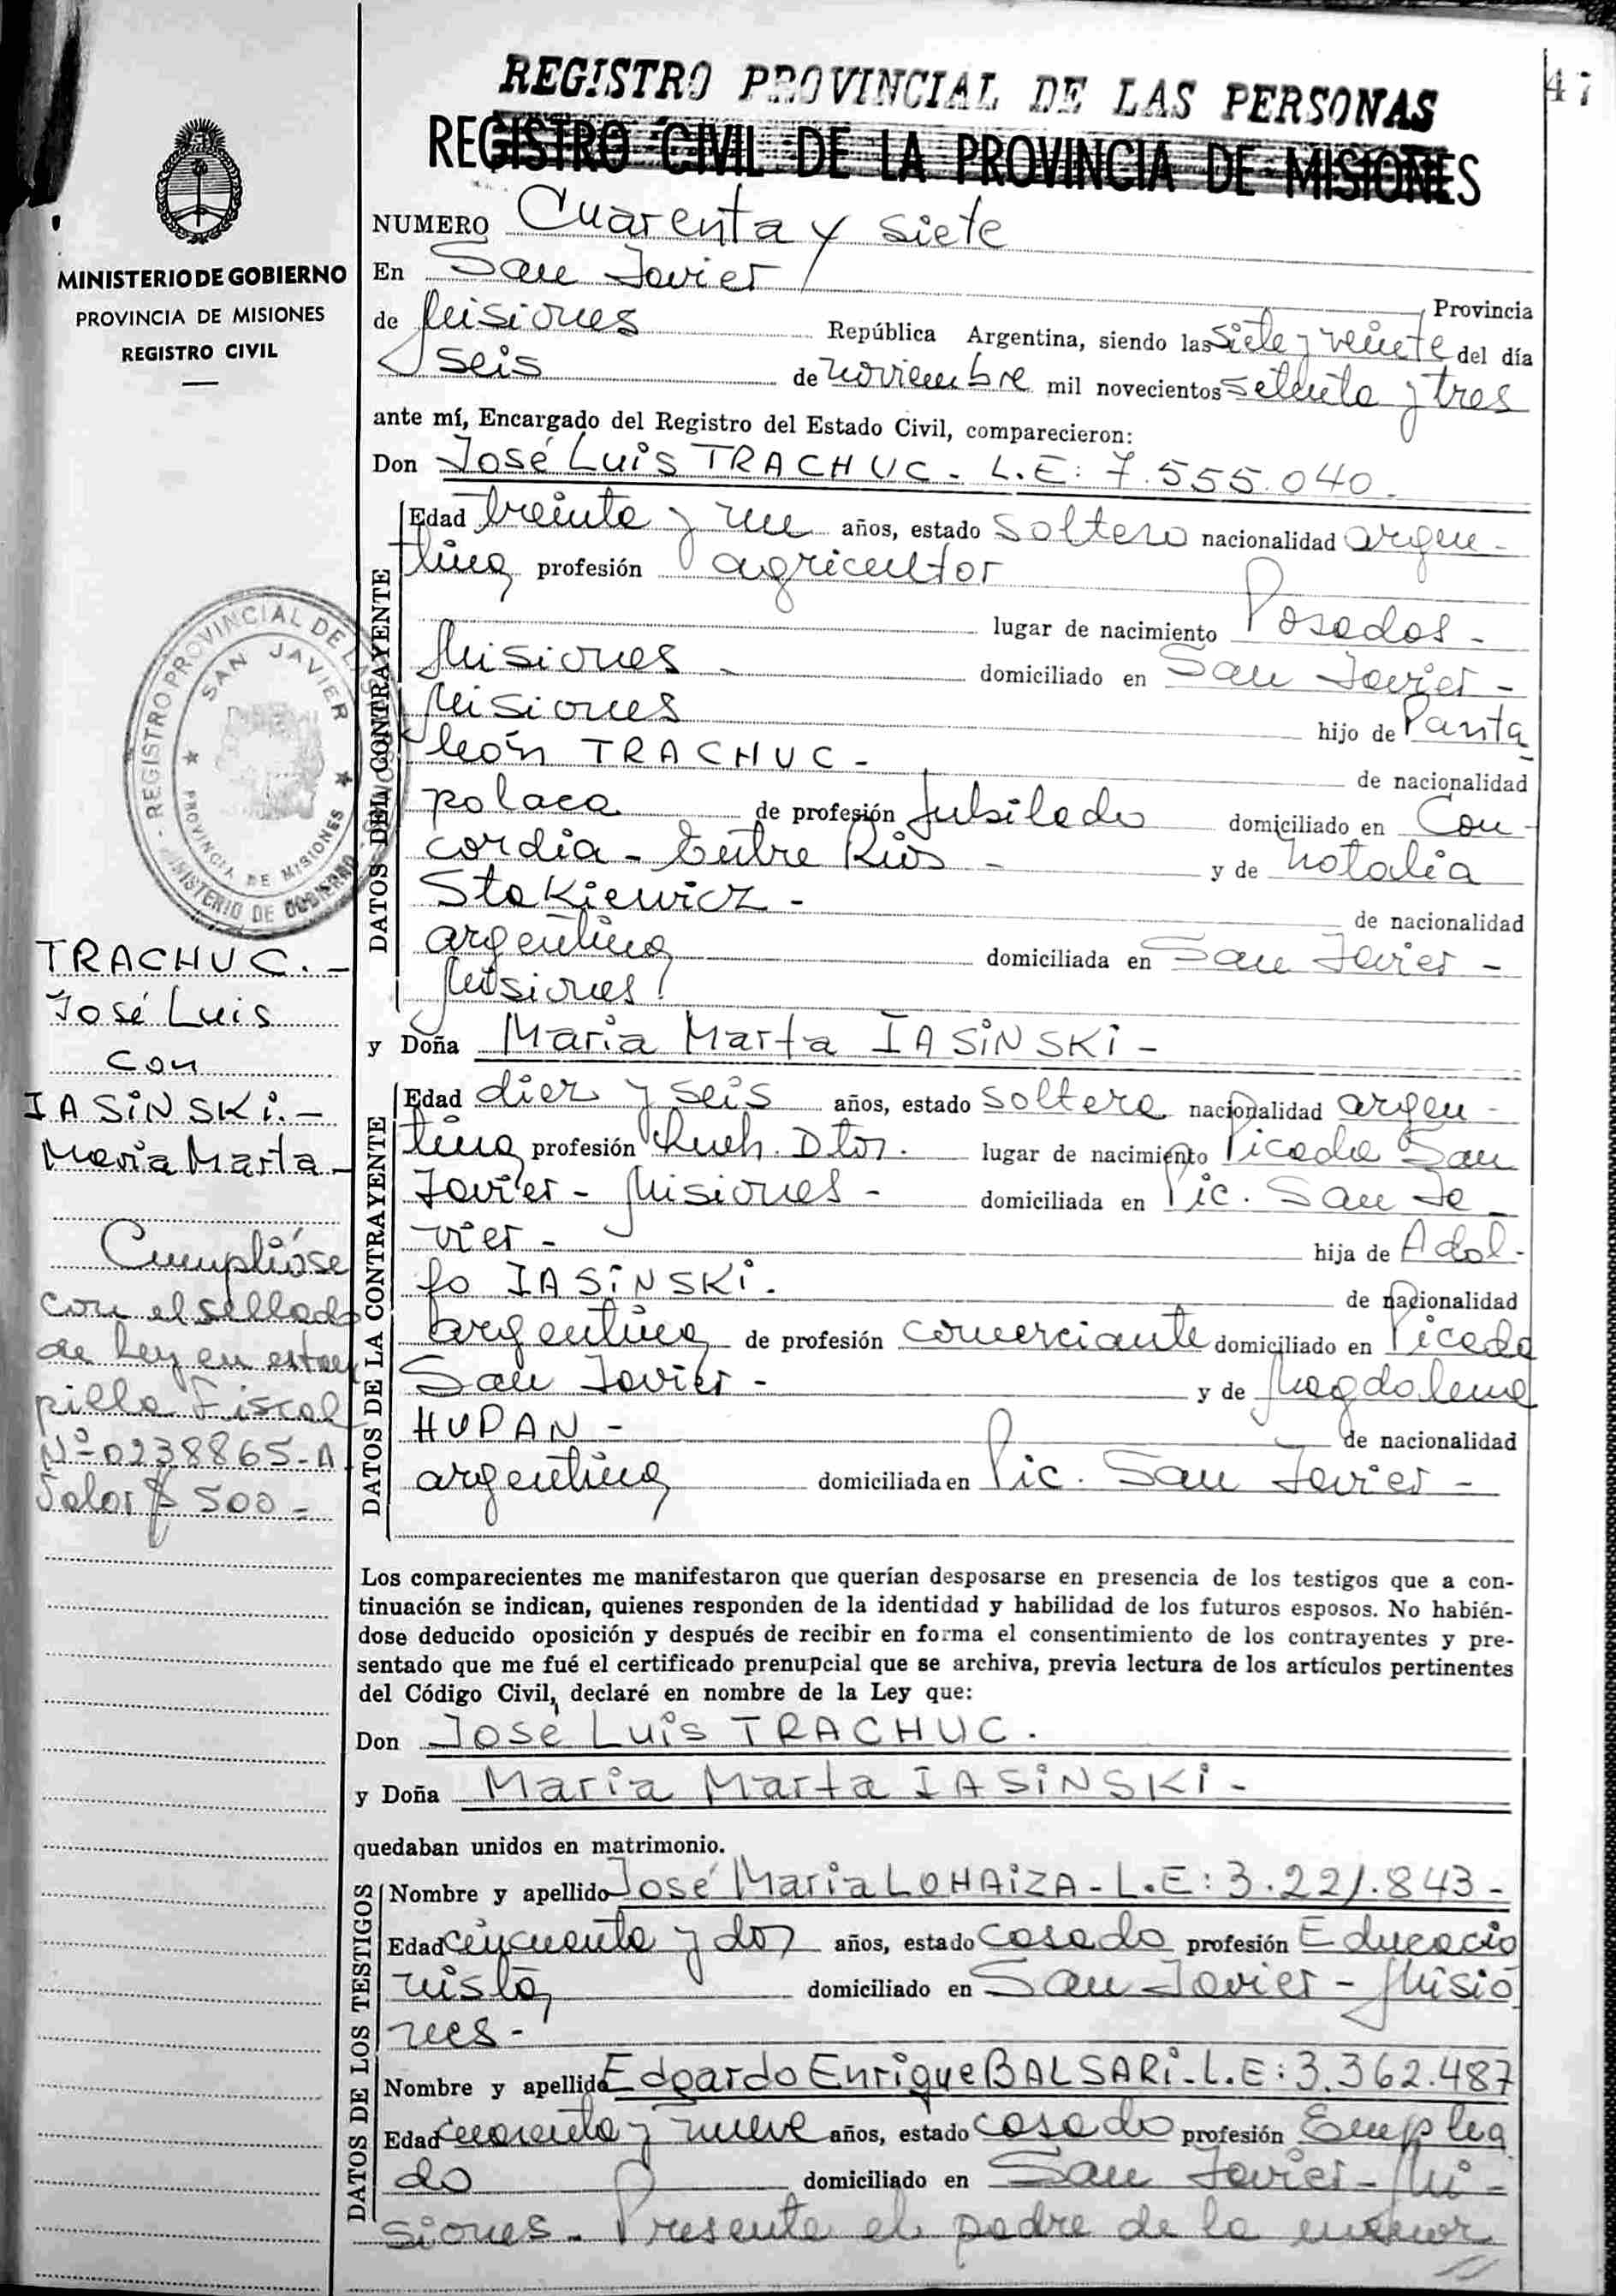 47
REGISTRO PROVINCIAL DE LAS PERSONAS
REGISTRO CIVIL DE LA PROVINCIA DE MISIONES
MINISTERIO DE GOBIERNO
PROVINCIA DE MISIONES
REGISTRO CIVIL
REGISTRO PROVINCIAL DE LAS
SAN JAVIER
PROVINCIA DE MISIONES
MINISTERIO DE GOBIERNO
TRACHUC.-
José Luis
con
IASiNSKi.-
María Marta-
Cumplióse
con el sellado
de Ley en estam
pilla Fiscal
Nº 0238865-A
Valor $ 500-
NUMERO Cuarenta y siete
En San Javier, Provincia
de Misiones República Argentina, siendo las siete y veinte del día
seis de noviembre mil novecientos setenta y tres
ante mí, Encargado del Registro del Estado Civil, comparecieron:
Don José Luis TRACHUC- L.E: 7.555.040-
DATOS DEL CONTRAYENTE
Edad treinta y un años, estado soltero nacionalidad argen-
tina profesión agricultor
lugar de nacimiento Posadas-
Misiones- domiciliado en San Javier-
Misiones hijo de Panta
león TRACHUC- de nacionalidad
polaca de profesión Jubilado domiciliado en Con-
cordia- Entre Rios- y de Natalia
Stakiewicz- de nacionalidad
argentina domiciliada en San Javier-
Misiones!
y Doña María Marta IASiNSKi-
DATOS DE LA CONTRAYENTE
Edad diez y seis años, estado soltera nacionalidad argen-
tina profesión Queh. Dtos. lugar de nacimiento Picada San
Javier- Misiones- domiciliada en Pic. San Ja
vier- hija de Adol-
fo IASiNSKi. de nacionalidad
argentina de profesión comerciante domiciliado en Picada
San Javier- y de Magdalena
HUPAN- de nacionalidad
argentina domiciliada en Pic. San Javier-
Los comparecientes me manifestaron que querían desposarse en presencia de los testigos que a con-
tinuación se indican, quienes responden de la identidad y habilidad de los futuros esposos. No habién-
dose deducido oposición y después de recibir en forma el consentimiento de los contrayentes y pre-
sentado que me fué el certificado prenupcial que se archiva, previa lectura de los artículos pertinentes
del Código Civil, declaré en nombre de la Ley que:
Don José Luis TRACHUC.
y Doña María Marta IASiNSKi-
quedaban unidos en matrimonio.
DATOS DE LOS TESTIGOS
Nombre y apellido José María LOHAiZA- L.E: 3.221.843-
Edad cincuenta y dos años, estado casado profesión Educacio
nista domiciliado en San Javier- Misio
nes-
Nombre y apellido Edgardo Enrique BALSARi- L.E: 3.362.487
Edad cuarenta y nueve años, estado casado profesión Emplea
do domiciliado en San Javier- Mi-
siones- Presente el padre de la menor
//